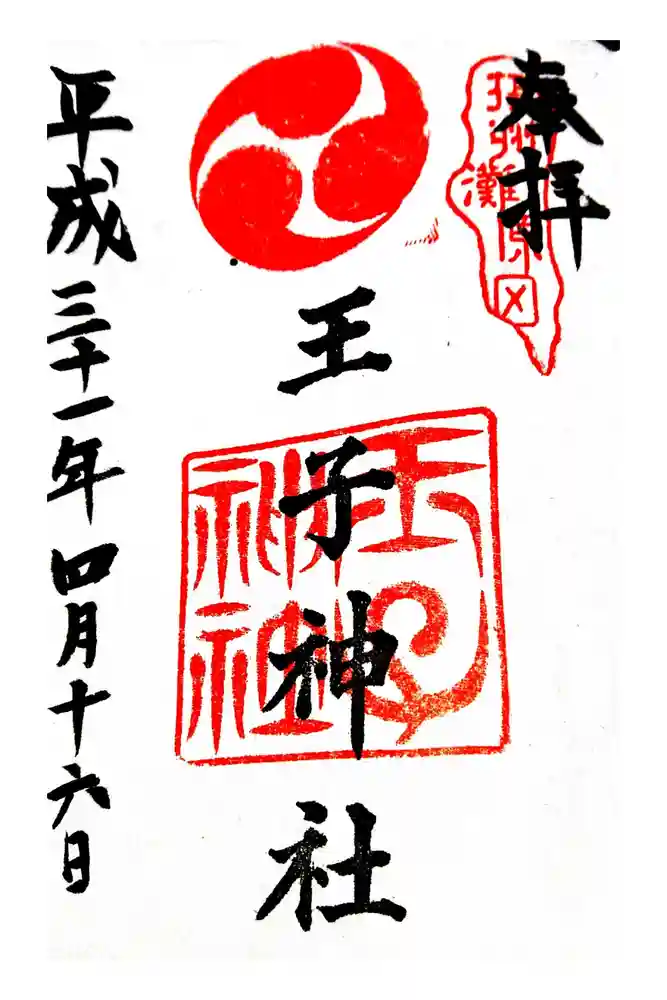 奉拝
王子神社
王子神社
平成三十一年四月十六日